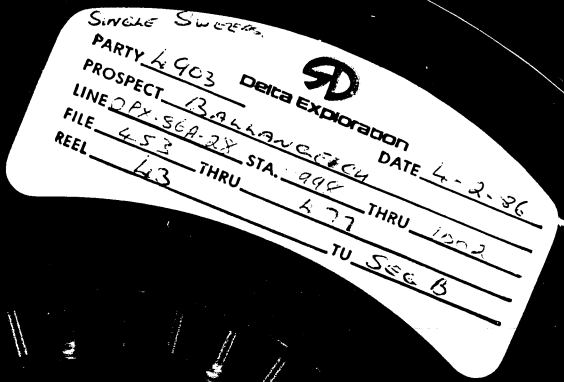 SINGLE SWEEPS
PARTY 4903
Delta Exploration
PROSPECT BALLANGEICH DATE 4-2-86
LINE OPX-86A-2X STA. 994 THRU 1002
FILE 453 THRU 477
REEL 43 TU SEG B